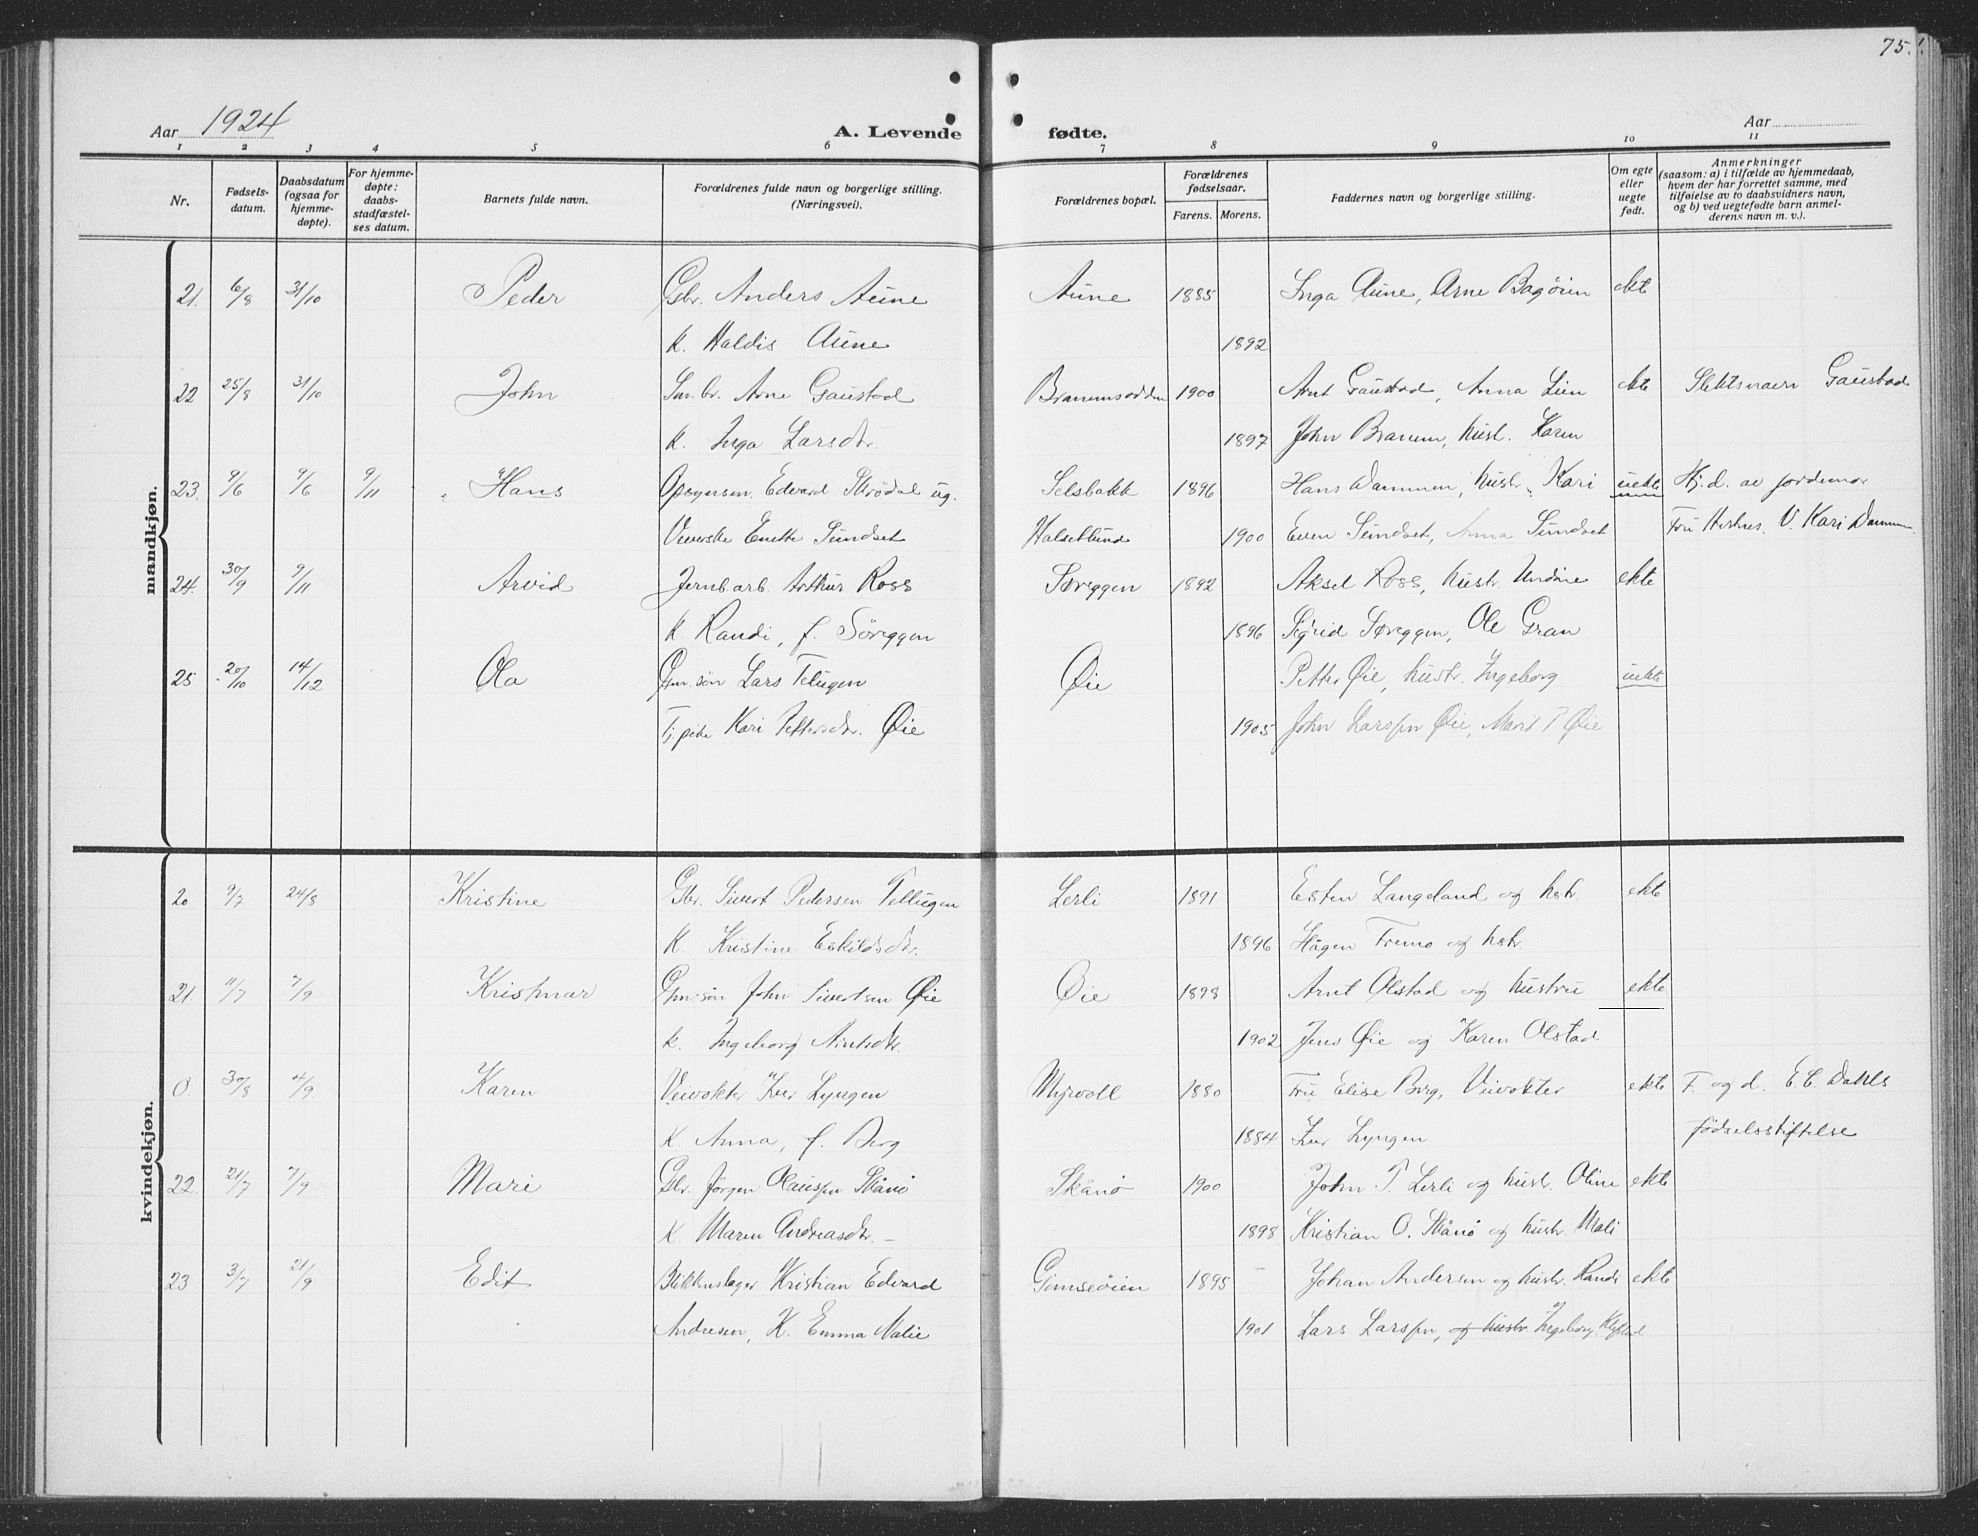 75.
Aar 1924
A. Levende fødte.
Aar
1 2 3 4 5 6 7 8 9 10 11
Nr.
Fødsels-
datum.
Daabsdatum
(ogsaa for
hjemme-
døpte).
For hjemme-
døpte:
daabs-
stadfæstel-
ses datum.
Barnets fulde navn.
Forældrenes fulde navn og borgerlige stilling.
(Næringsvei).
Forældrenes bopæl.
Forældrenes
fødselsaar.
Farens. Morens.
Faddernes navn og borgerlige stilling.
Om egte
eller
uegte
født.
Anmerkninger
(saasom: a) i tilfælde av hjemmedaab,
hvem der har forrettet samme, med
tilføielse av to daabsvidners navn,
og b) ved uegtefødte barn anmel-
derens navn m. v.).
mandkjøn.
21. 6/8 31/10 Peder Gbr. Anders Aune Aune 1885 Inga Aune, Arne Bagøien ekt
K. Haldis Aune 1892
22 25/8 31/10 John Sm.br. Arne Gaustad Branemsodden 1900 Arnt Gaustad, Anna Lien ekte Slektsnavn Gaustad
K. Inga Larsdtr. 1897 John Branem, hust. Karen
23. 9/6 9/6 9/11 Hans Opsynsm. Edvard Skrødal ug. Selsbakk 1896 Hans Dammen, hustr. Kari uekte Hj.d. av jordemor
Veverske Enette Sundset Halsetlund 1900 Even Sundset, Anna Sundset Fru V. Kari Dammen
24. 30/9 9/11 Arvid Jernb.arb. Arthur Ross Søreggen 1892 Aksel Ross, hustr. Undine ekte
K Randi, f. Søreggen 1896 Sigrid Søreggen, Ole Gran
25 20/10 14/12 Ola Gm.søn Lars Tellugen Øie Petter Øie, hustr. Ingeborg uekte
Tj.pike Kari Pettersdtr. Øie 1905 John Larssen Øie, Marit P Øie
kvindekjøn.
20 9/7 24/8 Kristine Gbr. Sivert Pedersen Tellugen Lerli 1891 Esten Langeland og hstr ekte
K. Kristine Eskildsdtr. 1896 Hågen Fremo og hstr.
21 11/7 7/9 Kristmar Gm.søn John Sivertsen Øie Øie 1898 Arnt Olstad og hustru ekte
k. Ingeborg Arntsdtr. 1902 Jens Øie og Karen Olstad
0. 30/8 4/9 Karen Veivokter Iver Lyngen Myrvoll 1880 Fru Elise Berg, Veivokter ekte F. og d. E. C. Dahls
K. Anna, f. Berg 1884 Iver Lyngen fødselsstiftelse
22. 21/7 7/9 Mari Gbr. Jørgen Olaussen Skånø Skånø 1900 John T. Lerli og hust. Oline ekte
K. Maren Andreasdtr. 1898 Kristian O. Skånø og hustr. Mali
23 3/7 21/9 Edit Blikkenslager Kristian Edvard Gimseøien 1895 Johan Andersen og hustr. Randi ekte
Andresen, K. Emma Malie 1901 Lars Larssen, og hustr. Ingeborg Kleftad